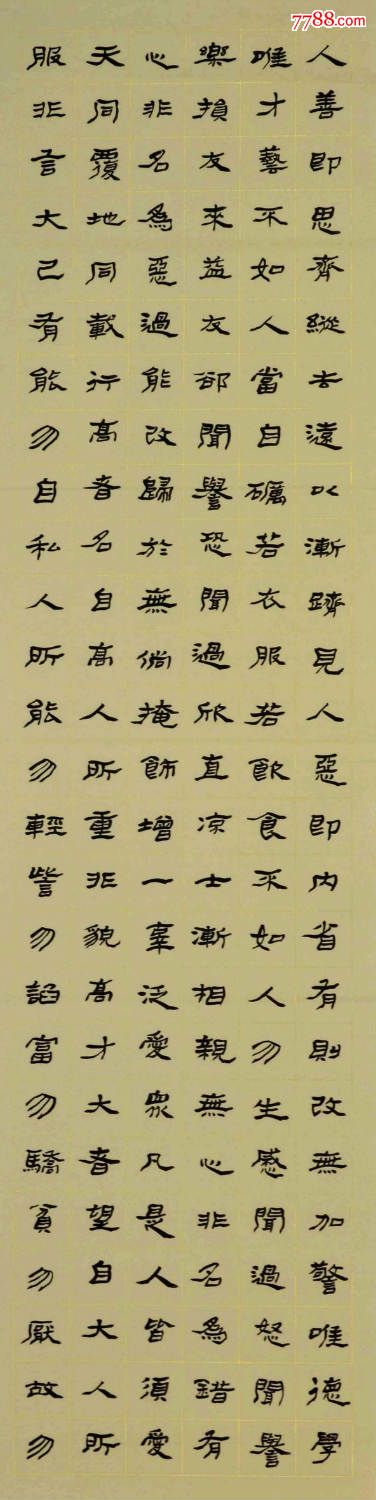 7788.com
人善即思齊縱去遠以漸躋見人惡即内省有則改無加警唯德學
唯才藝不如人當自礪若衣服若飲食不如人勿生慼聞過怒聞譽
樂損友來益友卻聞譽恐聞過欣直凉士漸相親無心非名為錯有
心非名為惡過能改歸於無倘掩飾增一辜泛愛眾凡是人皆須愛
天同覆地同載行高者名自高人所重非貌高才大者望自大人所
服非言大己有能勿自私人所能勿輕訾勿諂富勿驕貧勿厭故勿